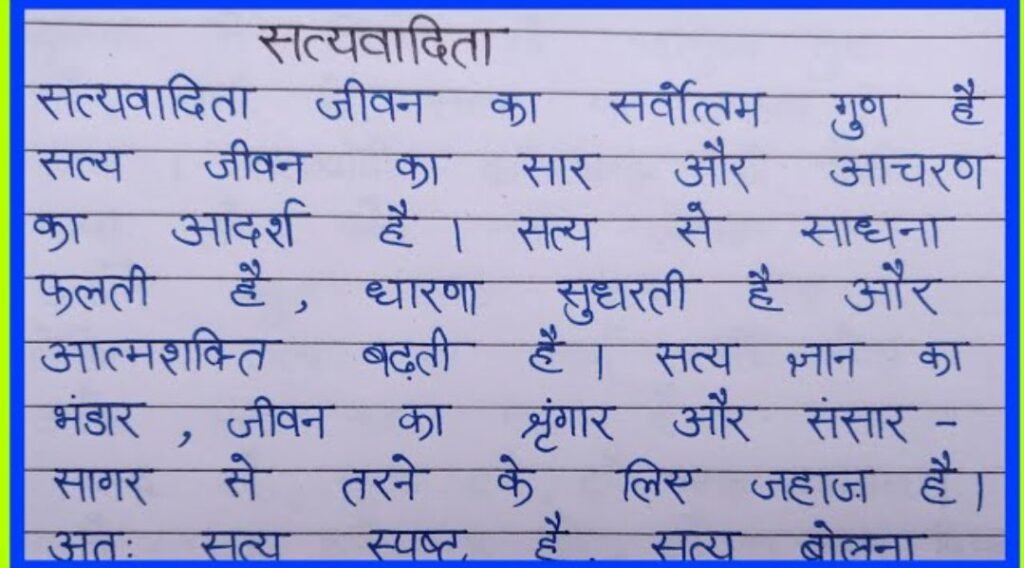 सत्यवादिता
सत्यवादिता जीवन का सर्वोत्तम गुण है
सत्य जीवन का सार और आचरण
का आदर्श है । सत्य से साधना
फलती है , धारणा सुधरती है और
आत्मशक्ति बढ़ती है । सत्य ज्ञान का
भंडार , जीवन का श्रृंगार और संसार -
सागर से तरने के लिए जहाज़ है ।
अतः सत्य स्पष्ट है . सत्य बोलना